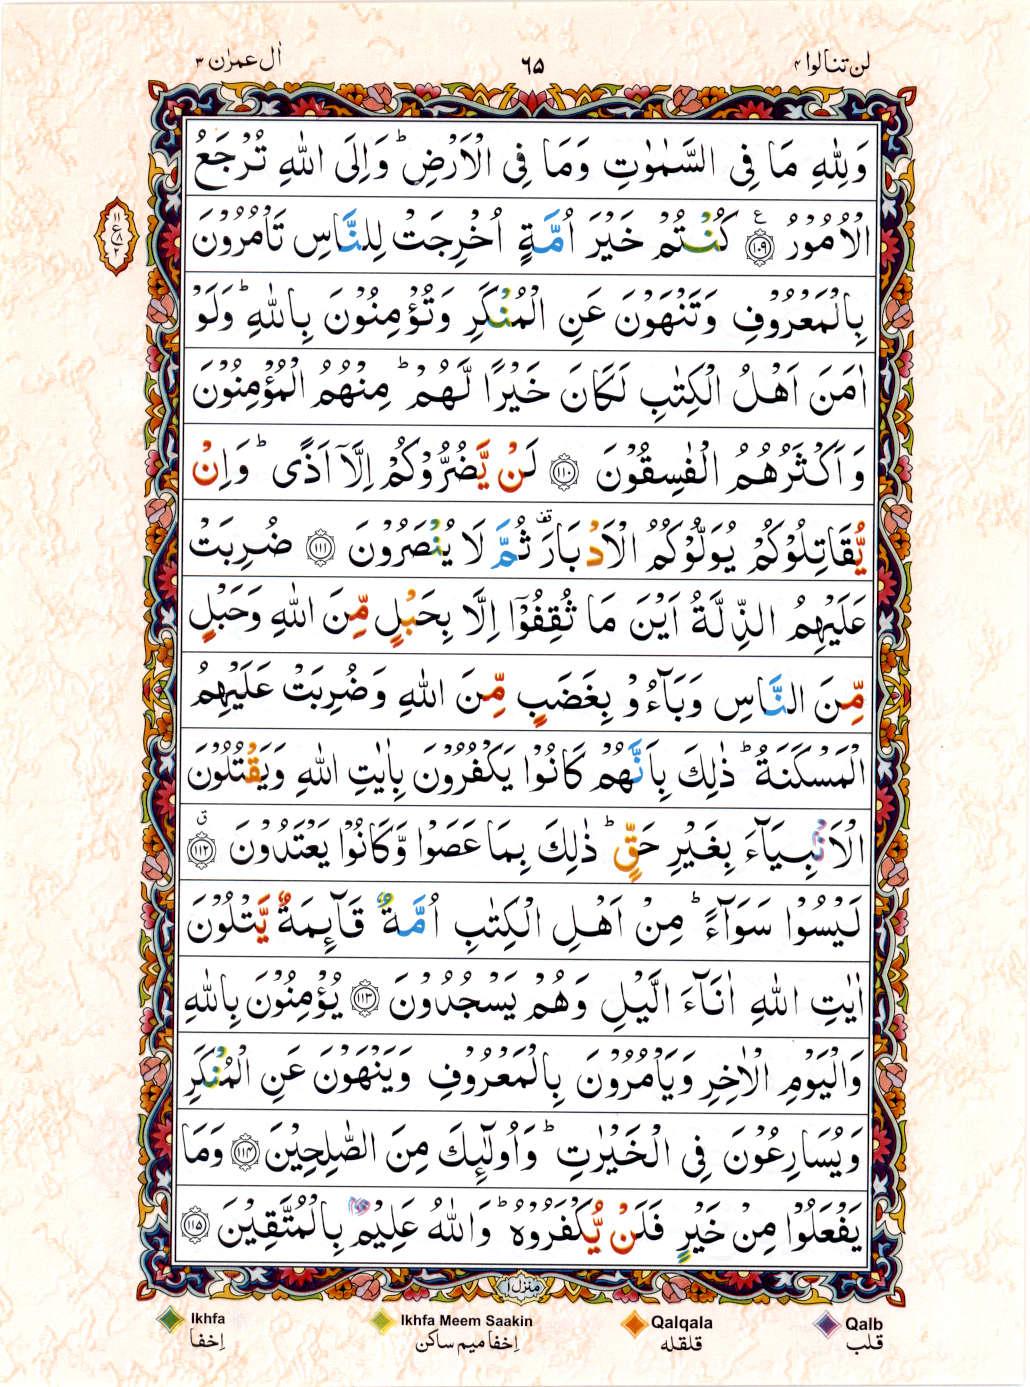 لن تنالوا ۴
٦۵
اٰل عمرٰن ۳
وَلِلّٰهِ مَا فِى السَّمٰوٰتِ وَمَا فِى الْاَرْضِ ؕ وَاِلَى اللّٰهِ تُرْجَعُ
الْاُمُوْرُ ﴿۱۰۹﴾ ع كُنْتُمْ خَيْرَ اُمَّةٍ اُخْرِجَتْ لِلنَّاسِ تَاْمُرُوْنَ
۱۱ ع ۸ ۲
بِالْمَعْرُوْفِ وَتَنْهَوْنَ عَنِ الْمُنْكَرِ وَتُؤْمِنُوْنَ بِاللّٰهِ ؕ وَلَوْ
اٰمَنَ اَهْلُ الْكِتٰبِ لَكَانَ خَيْرًا لَّهُمْ ؕ مِنْهُمُ الْمُؤْمِنُوْنَ
وَاَكْثَرُهُمُ الْفٰسِقُوْنَ ﴿۱۱۰﴾ لَنْ يَّضُرُّوْكُمْ اِلَّاۤ اَذًى ؕ وَاِنْ
يُّقَاتِلُوْكُمْ يُوَلُّوْكُمُ الْاَدْبَارَ قف ثُمَّ لَا يُنْصَرُوْنَ ﴿۱۱۱﴾ ضُرِبَتْ
عَلَيْهِمُ الذِّلَّةُ اَيْنَ مَا ثُقِفُوْۤا اِلَّا بِحَبْلٍ مِّنَ اللّٰهِ وَحَبْلٍ
مِّنَ النَّاسِ وَبَآءُوْ بِغَضَبٍ مِّنَ اللّٰهِ وَضُرِبَتْ عَلَيْهِمُ
الْمَسْكَنَةُ ؕ ذٰلِكَ بِاَنَّهُمْ كَانُوْا يَكْفُرُوْنَ بِاٰيٰتِ اللّٰهِ وَيَقْتُلُوْنَ
الْاَنْۢبِيَآءَ بِغَيْرِ حَقٍّ ؕ ذٰلِكَ بِمَا عَصَوْا وَّكَانُوْا يَعْتَدُوْنَ ﴿۱۱۲﴾ ق
لَيْسُوْا سَوَآءً ؕ مِنْ اَهْلِ الْكِتٰبِ اُمَّةٌ قَآئِمَةٌ يَّتْلُوْنَ
اٰيٰتِ اللّٰهِ اٰنَآءَ الَّيْلِ وَهُمْ يَسْجُدُوْنَ ﴿۱۱۳﴾ يُؤْمِنُوْنَ بِاللّٰهِ
وَالْيَوْمِ الْاٰخِرِ وَيَاْمُرُوْنَ بِالْمَعْرُوْفِ وَيَنْهَوْنَ عَنِ الْمُنْكَرِ
وَيُسَارِعُوْنَ فِى الْخَيْرٰتِ ؕ وَاُولٰٓئِكَ مِنَ الصّٰلِحِيْنَ ﴿۱۱۴﴾ وَمَا
يَفْعَلُوْا مِنْ خَيْرٍ فَلَنْ يُّكْفَرُوْهُ ؕ وَاللّٰهُ عَلِيْمٌۢ بِالْمُتَّقِيْنَ ﴿۱۱۵﴾
منزل ۱
Ikhfa Ikhfa Meem Saakin Qalqala Qalb
اِخفا اِخفا میم ساکن قلقله قلب